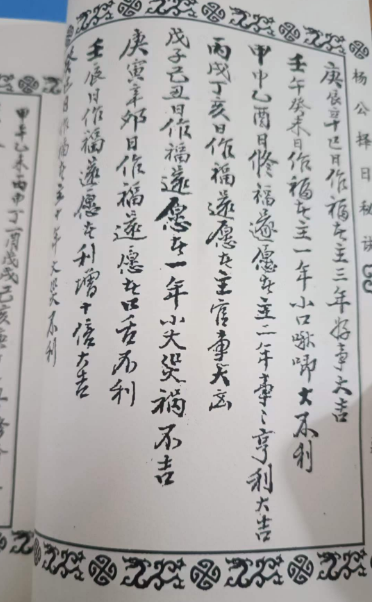 杨公择日秘诀
庚辰辛巳日作福主三年好事大吉
壬午癸未日作福主一年小口啾唧大不利
甲申乙酉日修福遂愿主二年事々亨利大吉
丙戌丁亥日作福遂愿主官事大凶
戊子己丑日作福遂愿一年小大災祸不吉
庚寅辛卯日作福遂愿口舌不利
壬辰日作福遂愿利增十倍大吉
甲午乙未丙申丁酉戊戌己亥